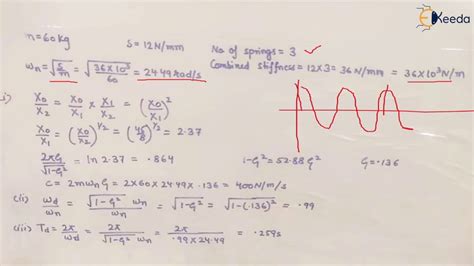 Ekeeda
m=60kg S=12N/mm No of springs = 3 ✓
ωn = √(S/m) = √(36×10³/60) = 24.49 rad/s Combined stiffness = 12×3 = 36 N/mm = 36×10³N/m
i) X0/X2 = X0/X1 × X1/X2 = (X0/X1)²
X0/X1 = (X0/X2)^(1/2) = (45/8)^(1/2) = 2.37
2πζ/√(1-ζ²) = ln 2.37 = .864 1-ζ² = 52.88 ζ² ζ = .136
c = 2mωnζ = 2×60×24.49×.136 = 400N/m/s
(ii) ωd/ωn = √(1-ζ²) ωn/ωn = √(1-ζ²) = √(1-(.136)²) = .99
(iii) Td = 2π/ωd = 2π/(√(1-ζ²) ωn) = 2π/(.99×24.49) = .259s